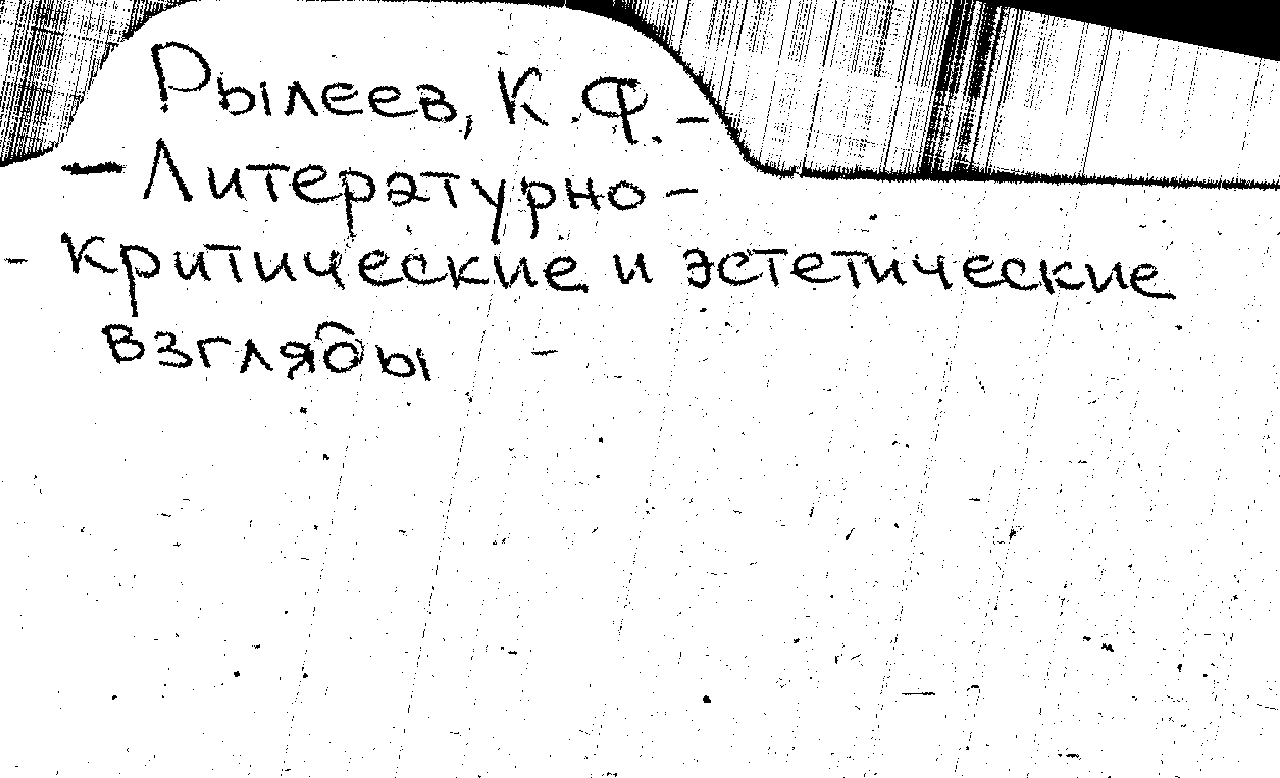 Рылеев, К.Ф. –
– Литературно –
– критические и эстетические
взгляды –